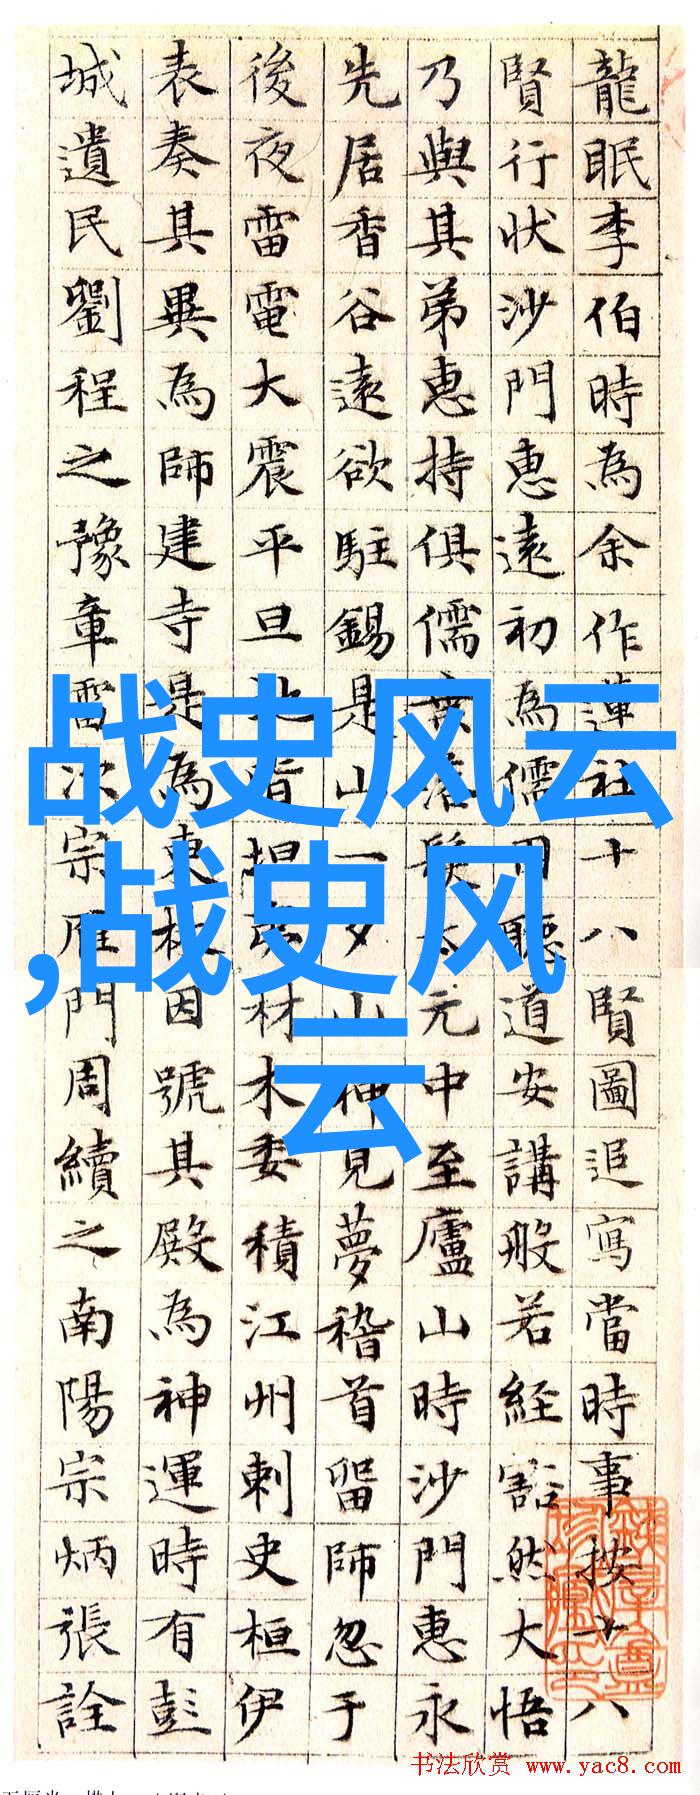 龍眠李伯時為余作蓮社十八賢圖追寫當時事按十八
賢行狀沙門惠遠初為儒聽道安講般若經豁然大悟
乃與其弟惠持俱儒落髮太元中至廬山時沙門惠永
先居香谷遠欲駐錫是山一夕山神見夢稽首留師忽于
後夜雷電大震平旦地皆材木委積江州刺史桓伊
表奏其異為師建寺是為東林因號其殿為神運時有彭
城遺民劉程之豫章雷次宗雁門周續之南陽宗炳張詮
战史风云
,战史风
云
书法欣赏 www.yac8.com